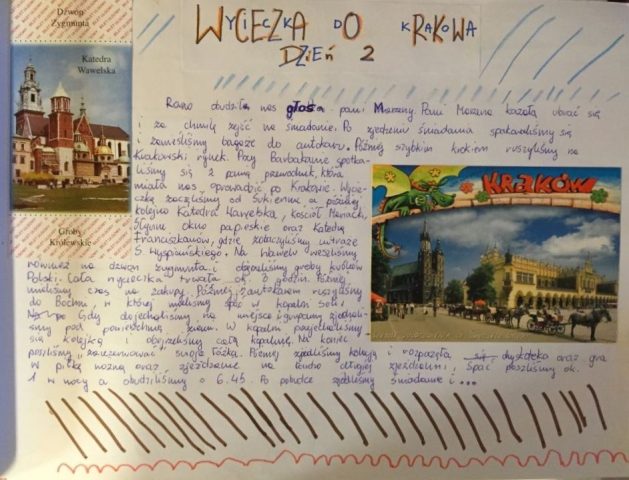 Dzwon
Zygmunta
Katedra
Wawelska
Groby
Królewskie
WYCIECZKA DO KRAKOWA
DZIEń 2
Rano obudził nas głos pani Marzeny. Pani Marzena kazała ubrać się
i za chwilę zejść na śniadanie. Po zjedzeniu śniadania spakowaliśmy się
i zanieśliśmy bagaże do autokaru. Później szybkim krokiem ruszyliśmy na
Krakowski rynek. Przy Barbakanie spotka-
liśmy się z panią przewodnik, która
miała nas oprowadzić po Krakowie. Wycie-
czkę zaczęliśmy od Sukiennic, a później
kolejno Katedra Wawelska, kościół Mariacki,
Słynne okno papieskie oraz Katedrę
Franciszkanów, gdzie zobaczyliśmy witraże
S. Wyspiańskiego. Na Wawelu weszliśmy
również na dzwon zygmunta i obejrzeliśmy groby królów
Polski. Cała wycieczka trwała ok. 2 godzin. Później
mieliśmy czas na zakupy. Później autokarem ruszyliśmy
do Bochni, w której mieliśmy spać w kopalni soli.
Gdy dojechaliśmy na miejsce i grupami zjechali-
śmy pod powierzchnię ziemi. W kopalni przejechaliśmy
się kolejką i obejrzeliśmy całą kopalnię. Na koniec
poszliśmy "zarezerwować" swoje łóżka. Później zjedliśmy kolację i rozpoczęła się dyskoteka oraz gra
w piłkę nożną oraz zjeżdżanie na długiej zjeżdżalni. Spać poszliśmy ok.
1 w nocy a obudziliśmy o 6.45. Po pobudce zjedliśmy śniadanie i ...
KRAKÓW